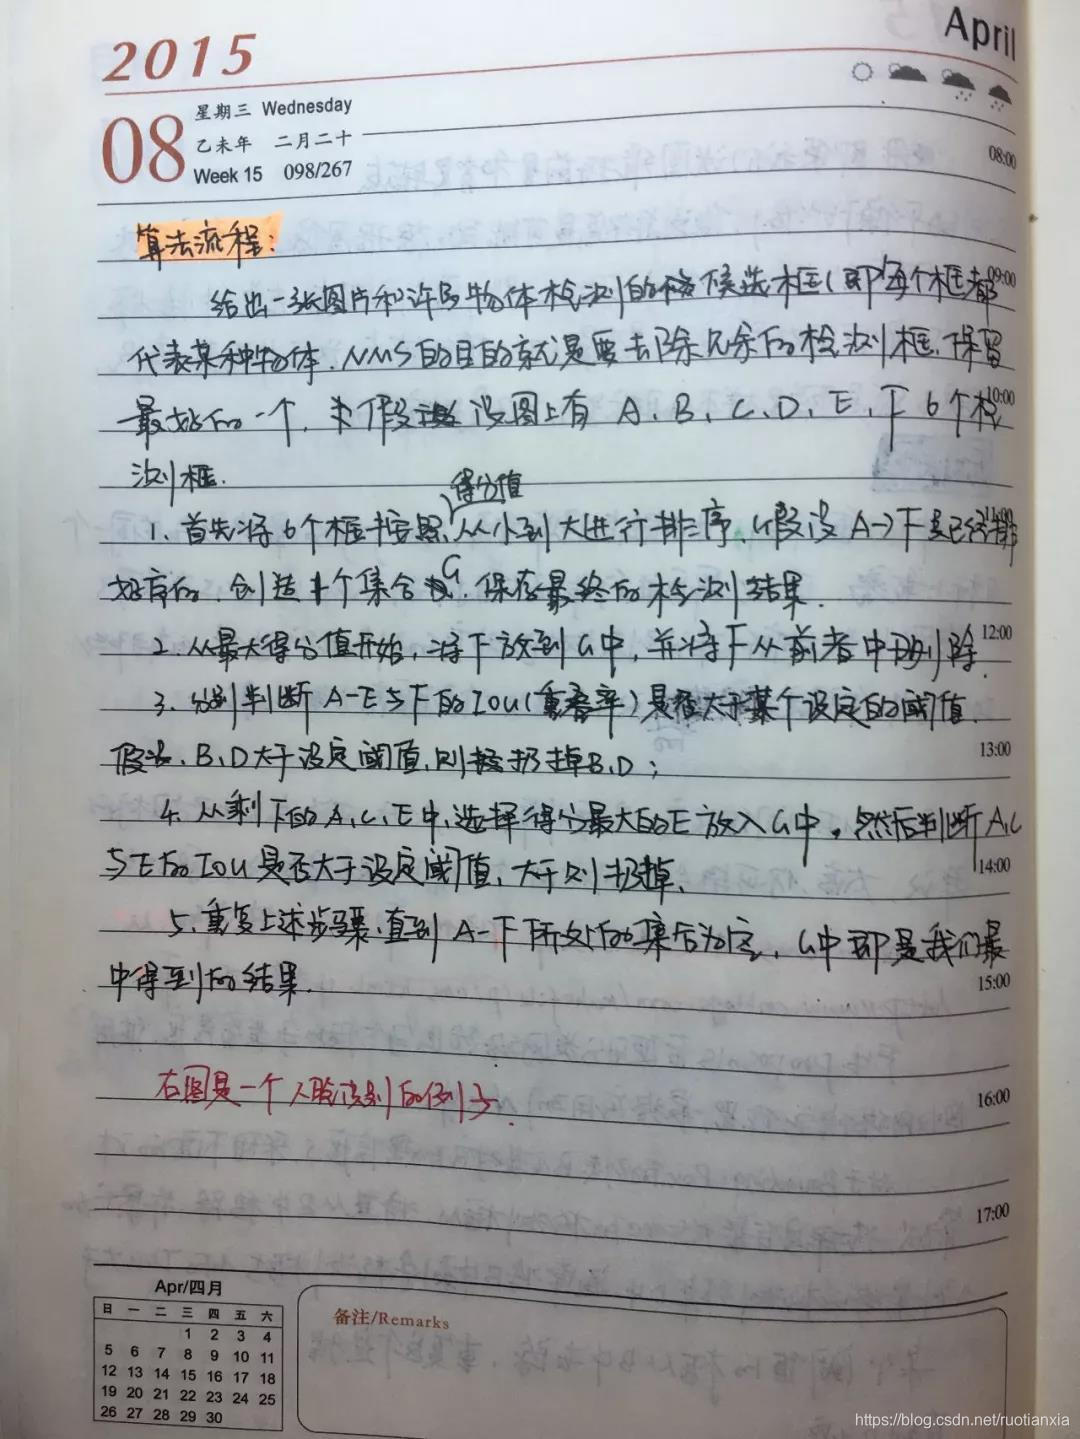 2015
April
08
星期三 Wednesday
乙未年 二月二十
Week 15 098/267
08:00
算法流程:
09:00
给出一张图片和许多物体检测的候选框(即每个框都
代表某种物体.NMS的目的就是要去除冗余的检测框,保留
10:00
最好的一个,假设图上有 A、B、C、D、E、F 6个检
测框.
得分值
11:00
1.首先将6个框按照从小到大进行排序,假设A→F是已经排
好序的.创造1个集合G,保存最终的检测结果.
12:00
2.从最大得分值开始,将F放到G中,并将F从前者中删除.
3.分别判断A-E与F的IOU(重叠率)是否大于某个设定的阈值.
13:00
假设,B、D大于设定阈值,则扔掉B、D;
4.从剩下的A、C、E中,选择得分最大的E放入G中,然后判断A、C
14:00
与E的IOU是否大于设定阈值,大于则扔掉.
5、重复上述步骤、直到A-F所处的集合为空,G中即是我们最
15:00
中得到的结果.
右图是一个人脸识别的例子.
16:00
17:00
Apr/四月
日 一 二 三 四 五 六
1 2 3 4
5 6 7 8 9 10 11
12 13 14 15 16 17 18
19 20 21 22 23 24 25
26 27 28 29 30
备注/Remarks
https://blog.csdn.net/ruotianxia